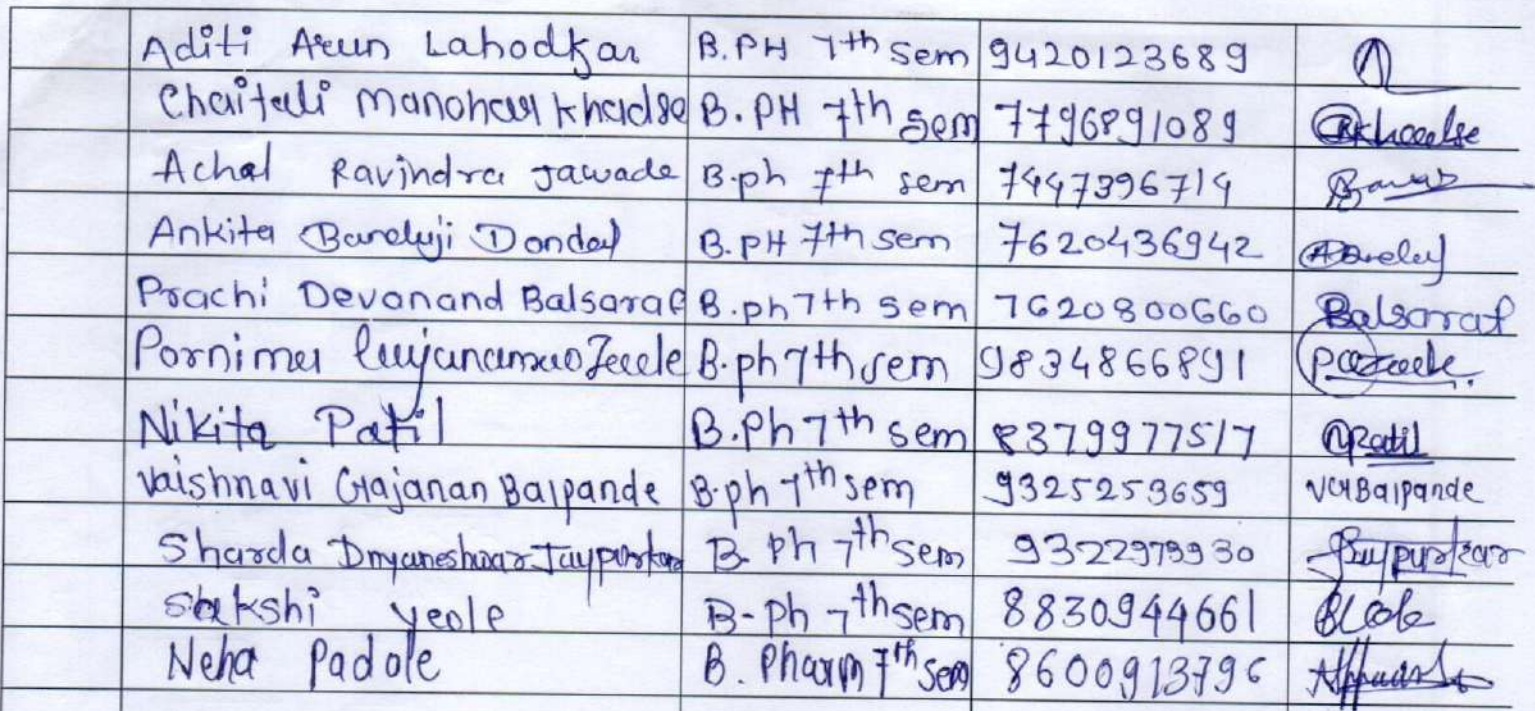 Aditi Arun Lahodkar B.PH 7th sem 9420123689
Chaitali Manohar Khadse B.PH 7th sem 7796891089
Achal Ravindra Jawade B.ph 7th sem 7447396714
Ankita Banduji Donday B.PH 7th sem 7620436942
Prachi Devanand Balsaraf B.ph 7th sem 7620800660 Balsaraf
Pornima B.ph 7th sem 9834866891
Nikita Patil B.Ph 7th sem 8379977517 Patil
Vaishnavi Gajanan Balpande B.ph 7th sem 9325259659 VGBalpande
Sharda Dnyaneshwar Jaypurkar B. Ph 7th sem 9322979930 Jaypurkar
Sakshi Yeole B-Ph 7th sem 8830944661
Neha Padole B. Pharm 7th sem 8600913796